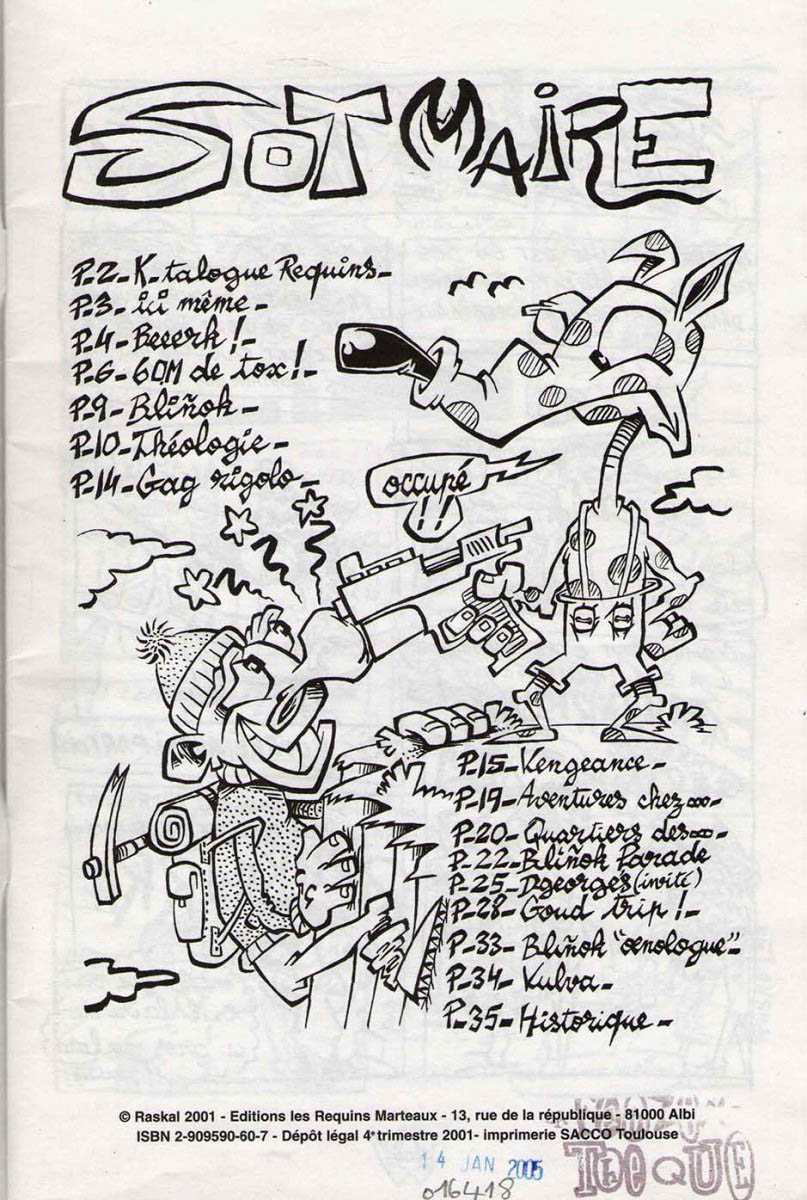 SOT MAIRE
P.2_K_talogue Requins_
P.3_ici même_
P.4_Beeerk !_
P.6_60M de tox !_
P.9_Bliñok_
P.10_Théologie_
P.14_Gag rigolo_
occupé !!
P.15_Vengeance_
P.19_Aventures chez∞_
P.20_Quartiers des∞_
P.22_Bliñok Parade
P.25_Dgeorges (invité)
P.28_Goud trip !_
P.33_Bliñok "œnologue"_
P.34_Vulva_
P.35_Historique_
© Raskal 2001 - Editions les Requins Marteaux - 13, rue de la république - 81000 Albi
ISBN 2-909590-60-7 - Dépôt légal 4e trimestre 2001- imprimerie SACCO Toulouse
14 JAN 2005
016418
THEQUE